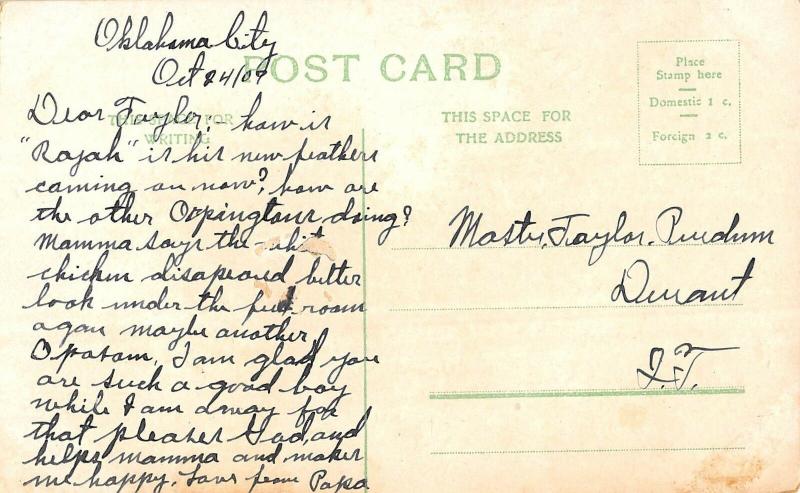 Oklahoma City
Oct 24/09
POST CARD
Place
Stamp here
Domestic 1 c.
Foreign 2 c.
THIS SPACE FOR
WRITING
THIS SPACE FOR
THE ADDRESS
Dear Taylor:- how is
"Rajah" is his new feathers
coming on now? how are
the other Orpingtons doing?
Mamma says the whit
chicken disapeared better
look under the feed room
agan maybe another
Opasam. I am glad you
are such a good boy
while I am away for
that pleases God, and
helps mamma and makes
me happy. Love from Papa
Master Taylor Purdum
Durant
I.T.